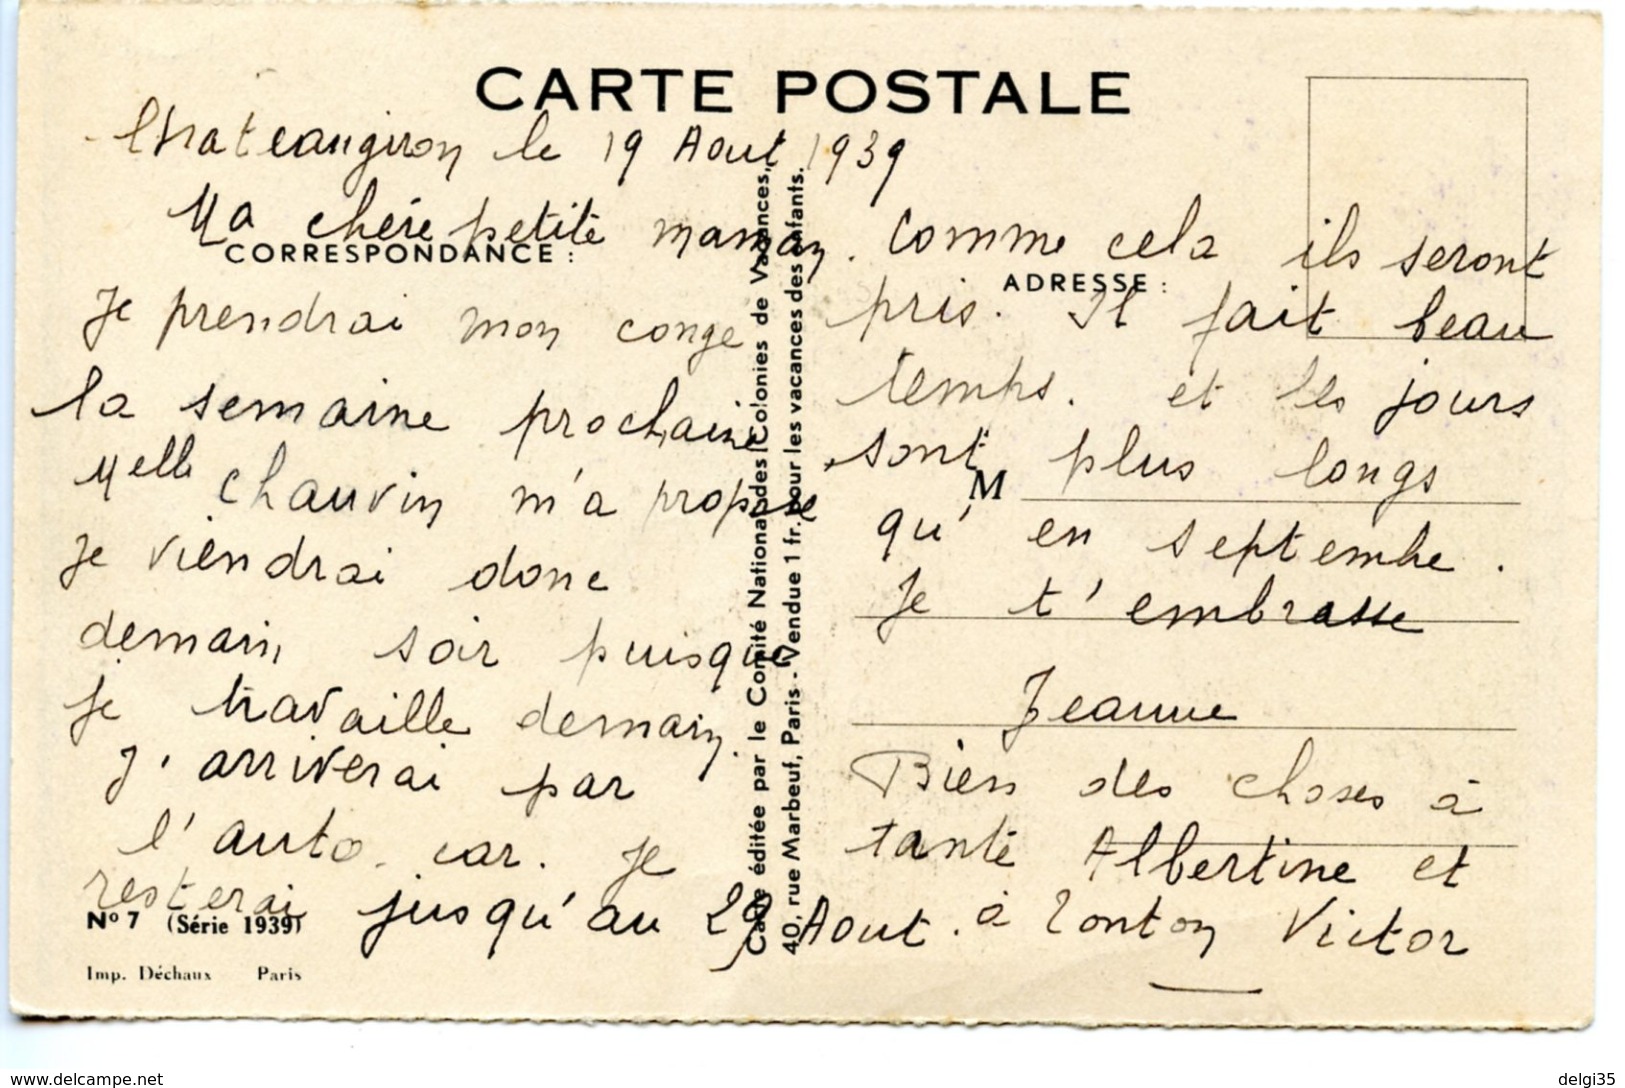 CARTE POSTALE
Chateaugiron le 19 Aout 1939
Ma chére petite maman.
CORRESPONDANCE :
Je prendrai mon conge
la semaine prochaine
Melle chauvin m'a propose
je viendrai donc
demain soir puisque
je travaille demain.
J'arriverai par
l'auto. car. je
resterai jusqu'au 29 Aout.
N° 7 (Série 1939)
Imp. Déchaux Paris
Carte éditée par le Comité National des Colonies de Vacances,
40, rue Marbeuf, Paris - Vendue 1 fr. pour les vacances des enfants.
Comme cela ils seront
ADRESSE :
pris. Il fait beau
temps. et les jours
sont plus longs
M
qu'en septembre.
Je t'embrasse
Jeanne
Bien des choses à
tante Albertine et
à tonton Victor
www.delcampe.net
delgi35